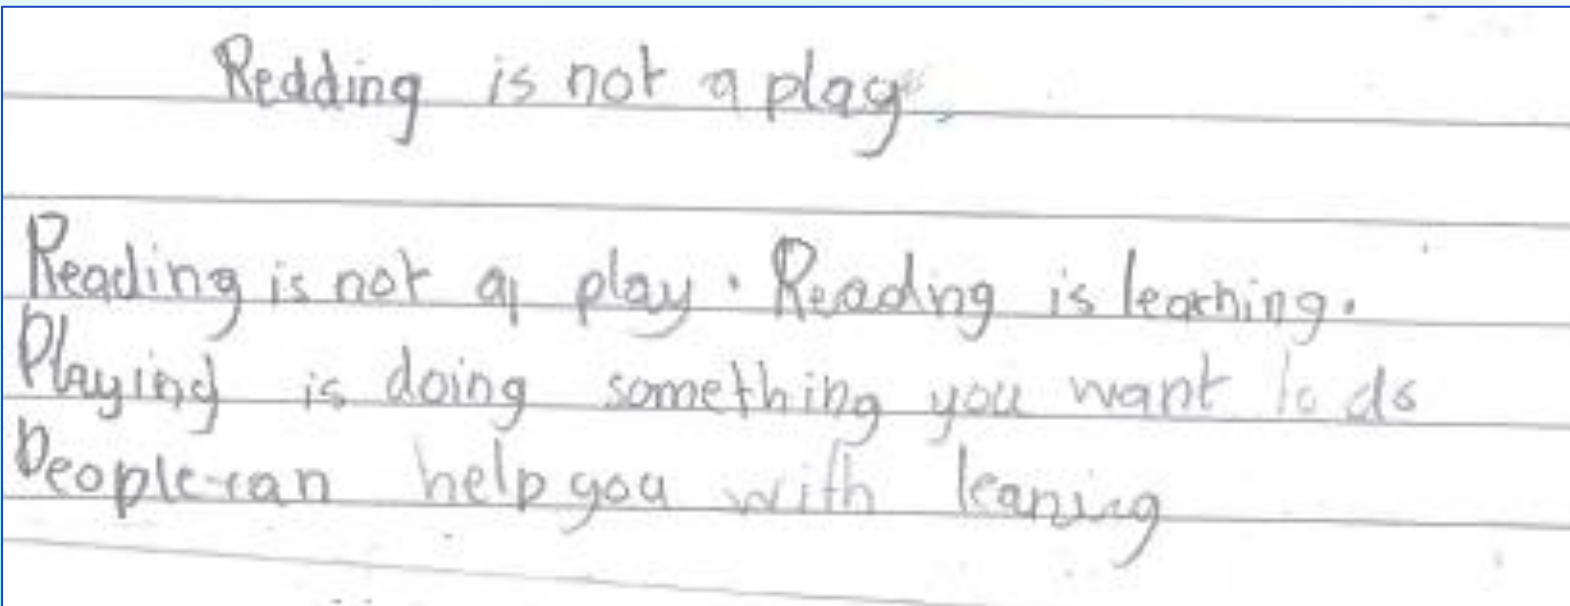 Redding is not a play.
Reading is not a play. Readng is learhing.
Playing is doing something you want to do
People can help you with leaning